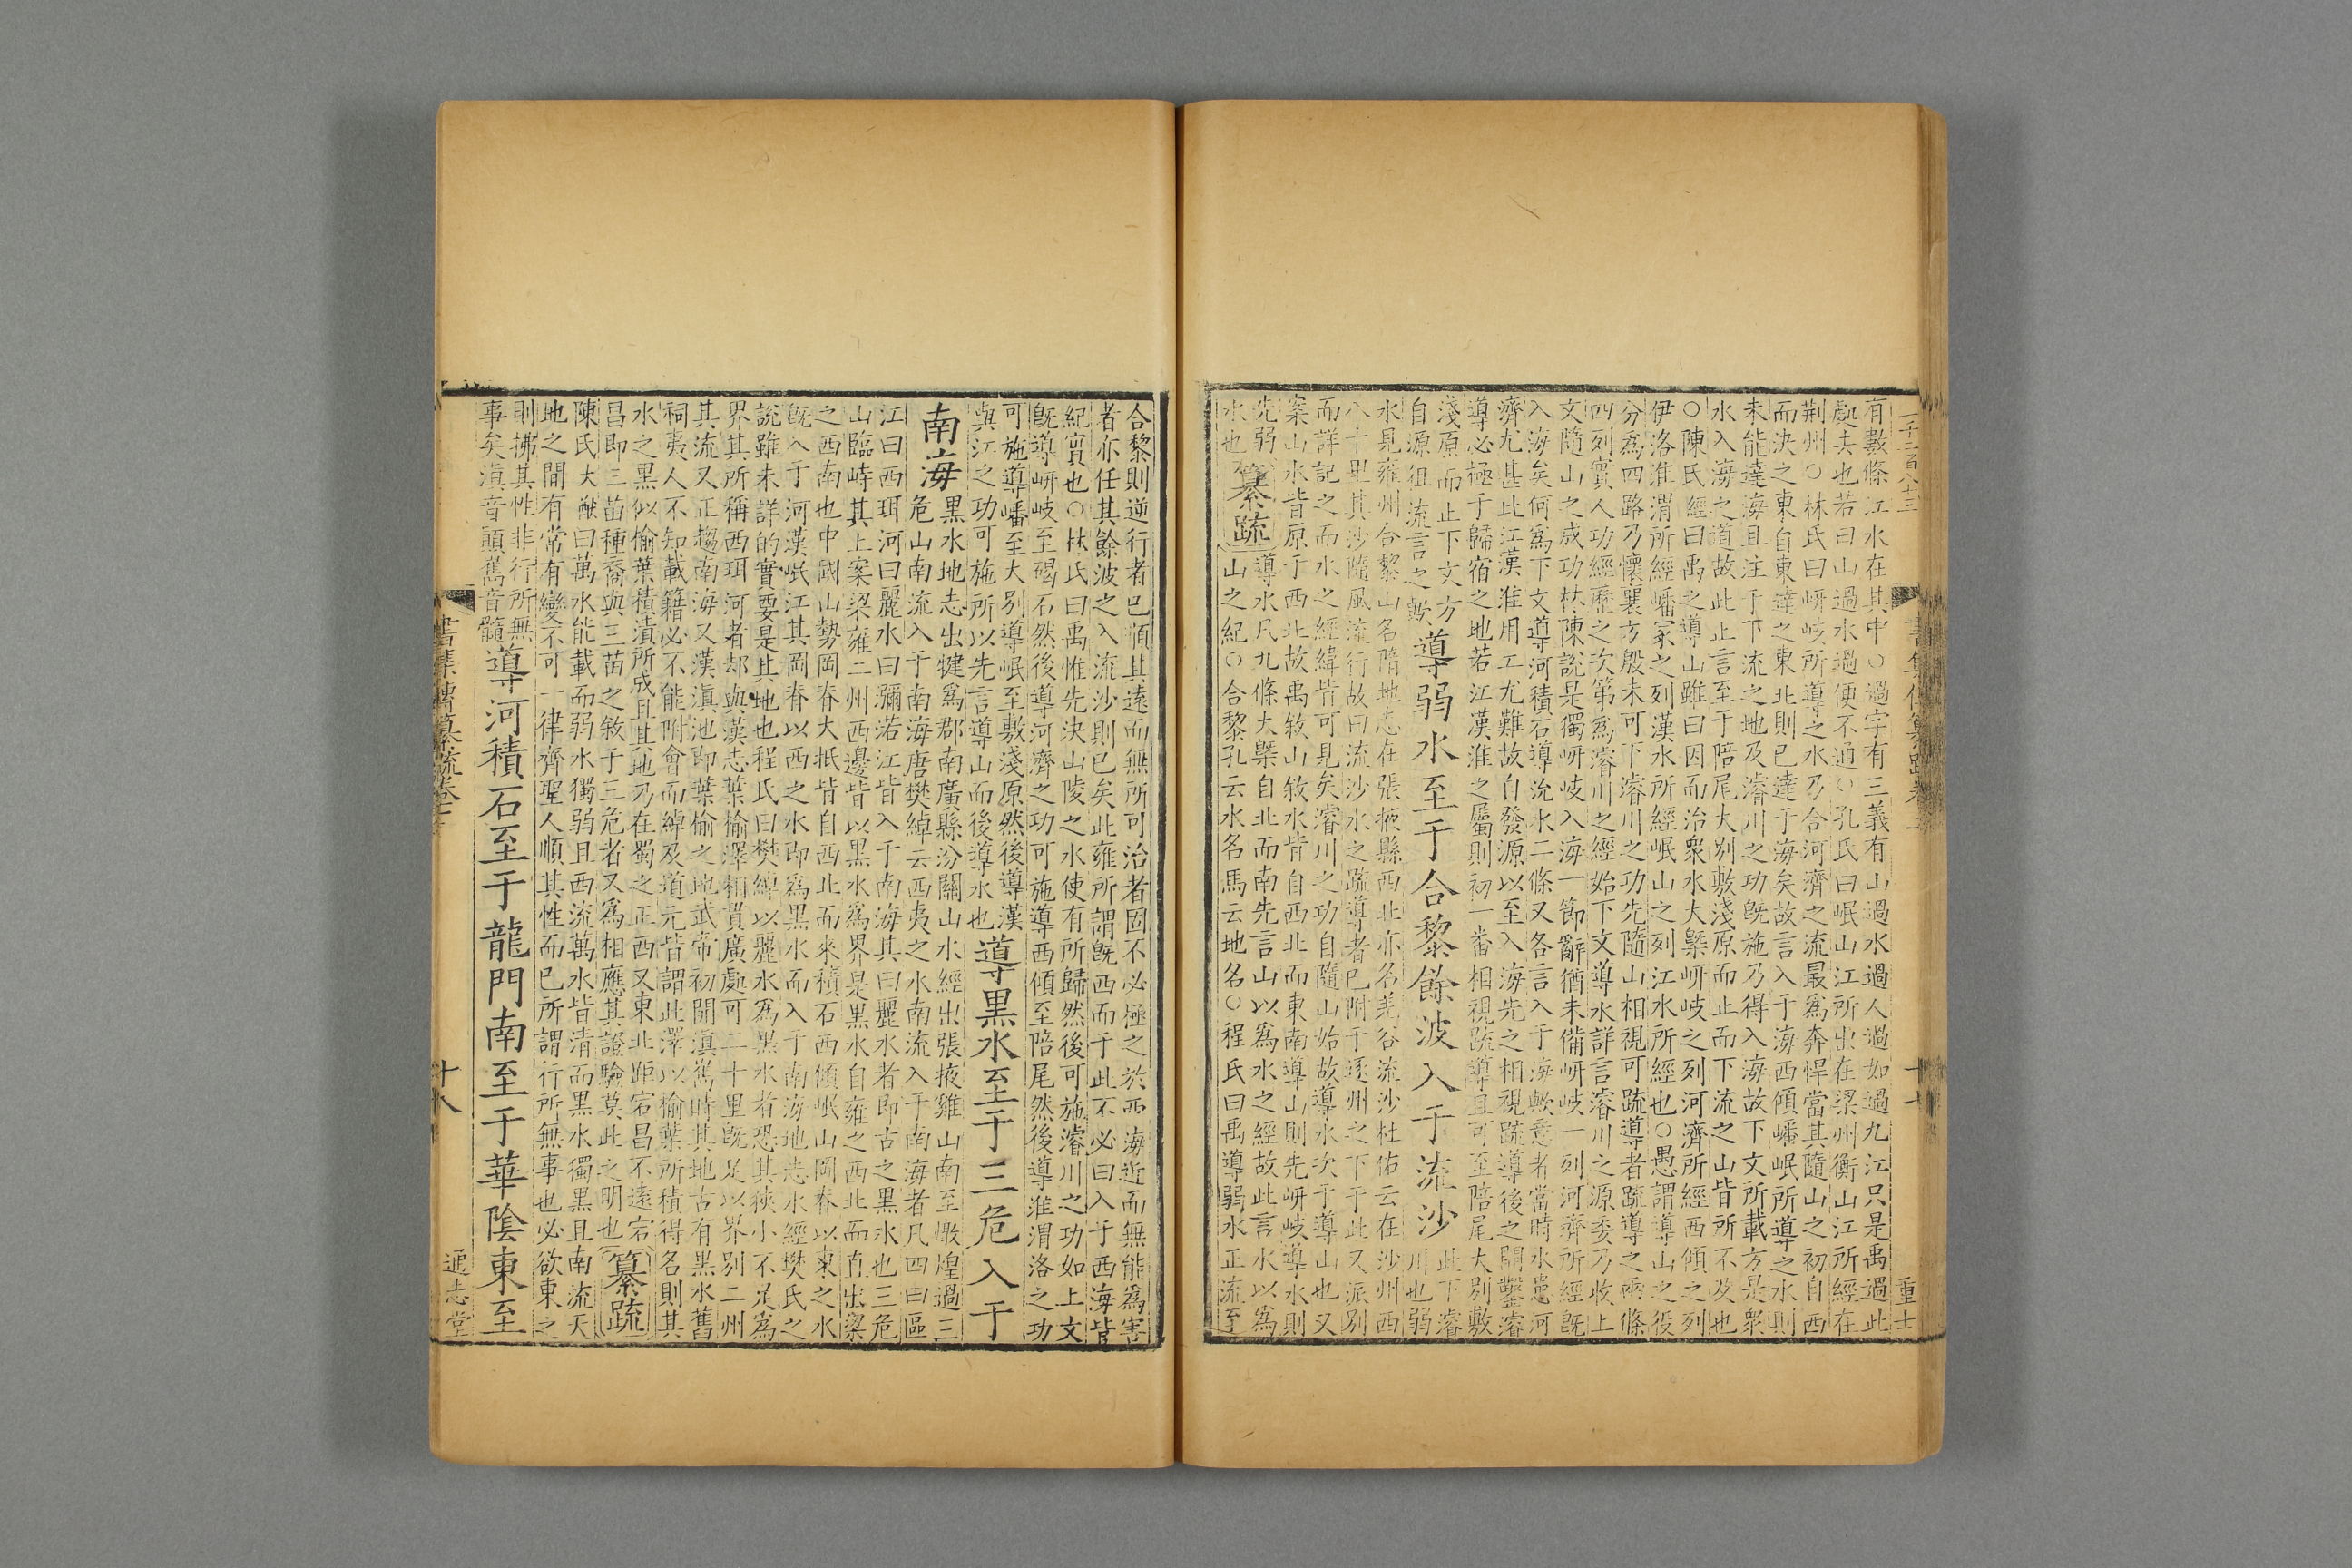 有數條江水在其中○過字有三義有山過水過人過如過九江只是禹過此
處去也若曰山過水過便不通○孔氏曰岷山江所出在梁州衡山江所經在
荆州○林氏曰岍岐所導之水乃合河濟之流最爲奔悍當其隨山之初自西
而決之東自東達之東北則已達于海矣故言入于海西傾嶓岷所導之水則
未能達海且注于下流之地及濬川之功旣施乃得入海故下文所載方是衆
水入海之道故此止言至于陪尾大别敷淺原而止而下流之山皆所不及也
○陳氏經曰禹之導山雖曰因而治衆水大槩岍岐之列河濟所經西傾之列
伊洛淮渭所經嶓冢之列漢水所經岷山之列江水所經也○愚謂導山之役
分爲四路乃懷襄方殷未可下濬川之功先隨山相視可疏導者疏導之兩條
四列實人功經歷之次第爲濬川之經始下文導水詳言濬川之源委乃收上
文隨山之成功林陳說是獨岍岐入海一節辭猶未備岍岐一列河濟所經旣
入海矣何爲下文導河積石導沇水二條又各言入于海歟意者當時水患河
濟尤甚此江漢淮用工尤難故自發源以至入海先之相視疏導後之開鑿濬
導必極于歸宿之地若江漢淮之屬則初一番相視疏導且可至陪尾大别敷
淺原而止下文方
自源徂流言之歟
導弱水至于合黎餘波入于流沙
此下濬
川也弱
水見雍州合黎山名隋地志在張掖縣西北亦名羌谷流沙杜佑云在沙州西
八十里其沙隨風流行故曰流沙水之疏導者已附于逐州之下于此又派别
而詳記之而水之經緯皆可見矣濬川之功自隨山始故導水次于導山也又
案山水皆原于西北故禹敘山敘水皆自西北而東南導山則先岍岐導水則
先弱
水也
纂疏
導水凡九條大槩自北而南先言山以爲水之經故此言水以爲
山之紀○合黎孔云水名馬云地名○程氏曰禹導弱水正流至
書集傳纂疏卷二
十七
合黎則逆行者已順其遠而無所可治者固不必極之於西海近而無能爲害
者亦任其餘波之入流沙則已矣此雍所謂旣西而于此不必曰入于西海皆
紀實也○林氏曰禹惟先決山陵之水使有所歸然後可施濬川之功如上文
旣導岍岐至碣石然後導河濟之功可施導西傾至陪尾然後導淮渭洛之功
可施導嶓至大别導岷至敷淺原然後導漢
與江之功可施所以先言導山而後導水也
導黑水至于三危入于
南海
黑水地志出犍爲郡南廣縣汾關山水經出張掖雞山南至燉煌過三
危山南流入于南海唐樊綽云西夷之水南流入于南海者凡四曰區
江曰西珥河曰麗水曰瀰若江皆入于南海其曰麗水者即古之黑水也三危
山臨峙其上案梁雍二州西邊皆以黑水爲界是黑水自雍之西北而直出梁
之西南也中國山勢岡脊大抵皆自西北而來積石西傾岷山岡脊以東之水
旣入于河漢岷江其岡脊以西之水即爲黑水而入于南海地志水經樊氏之
說雖未詳的實要是其地也程氏曰樊綽以麗水爲黑水者恐其狹小不足爲
界其所稱西珥河者却與漢志葉榆澤相貫廣處可二十里旣足以界别二州
其流又正趨南海又漢滇池即葉榆之地武帝初開滇嶲時其地古有黑水舊
祠夷人不知載籍必不能附會而綽及道元皆謂此澤以榆葉所積得名則其
水之黑似榆葉積漬所成且其地乃在蜀之正西又東北距宕昌不遠宕
昌即三苗種裔與三苗之敘于三危者又爲相應其證驗莫此之明也
纂疏
陳氏大猷曰萬水能載而弱水獨弱且西流萬水皆清而黑水獨黑且南流天
地之間有常有變不可一律齊聖人順其性而已所謂行所無事也必欲東之
則拂其性非行所無
事矣滇音顚嶲音髓
導河積石至于龍門南至于華陰東至
書集傳纂疏卷二
十八
通志堂